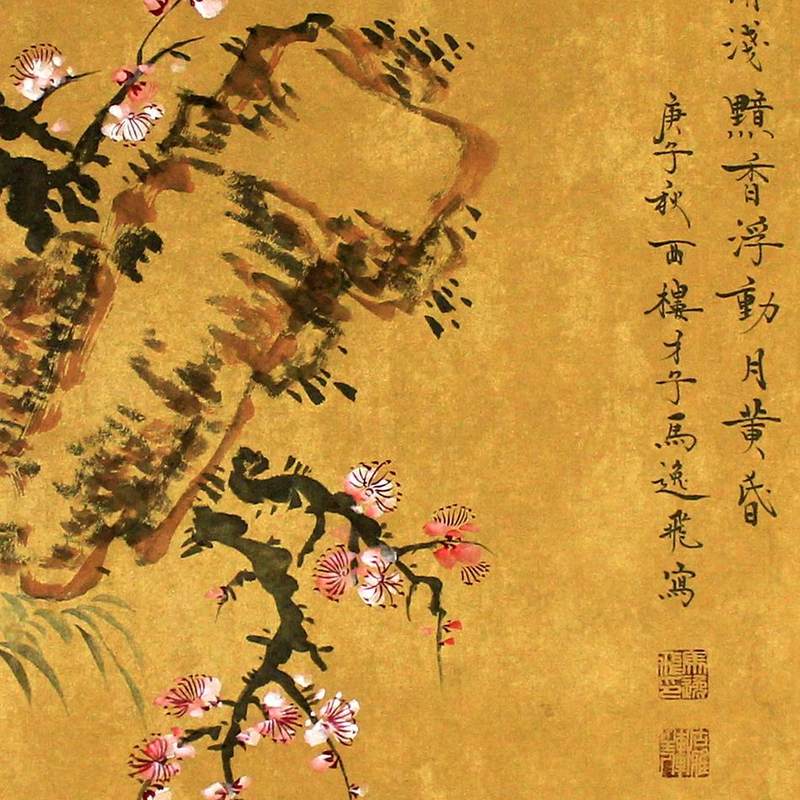 淺黯香浮動月黃昏
庚子秋西樓才子馬逸飛寫